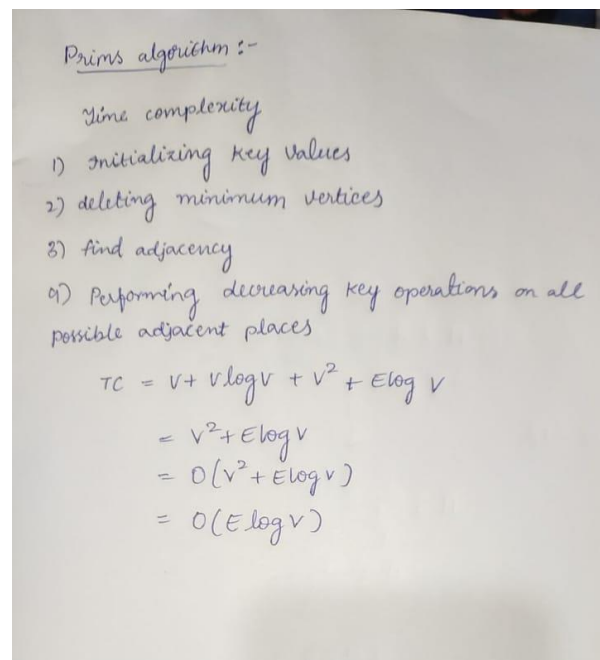 Prims algorithm :-
Time complexity
1) Initializing key values
2) deleting minimum vertices
3) find adjacency
4) Performing decreasing key operations on all
possible adjacent places
TC = V + V log V + V² + E log V
= V² + E log V
= O(V² + E log V)
= O(E log V)